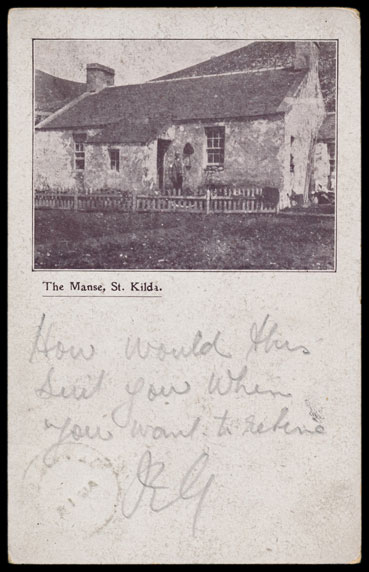 The Manse, St. Kilda.
How would this
suit you when
you want to retire